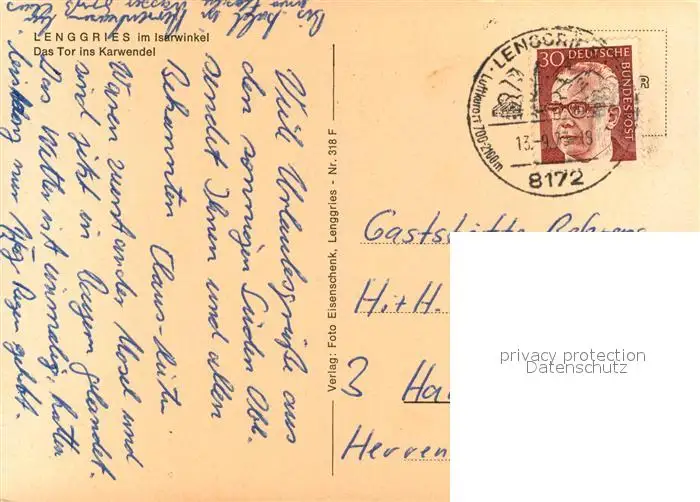 LENGGRIES im Isarwinkel
Das Tor ins Karwendel
Viele Urlaubsgrüße aus
dem sonnigen Süden Abl.
sendet Ihnen und allen
Bekannten Claus-
Waren zuerst an der Mosel und
sind jetzt in Bayern gelandet.
Das Wetter ist einmalig, hatten
nur 1 Tag Regen gehabt.
Bis
Verlag: Foto Eisenschenk, Lenggries - Nr. 318 F
LENGGRIE
Luftkurort 700-2100m
13.-9.
8172
30 DEUTSCHE BUNDESPOST
Gaststätte Behrens
H. + H.
3 Ha
Herren
privacy protection
Datenschutz